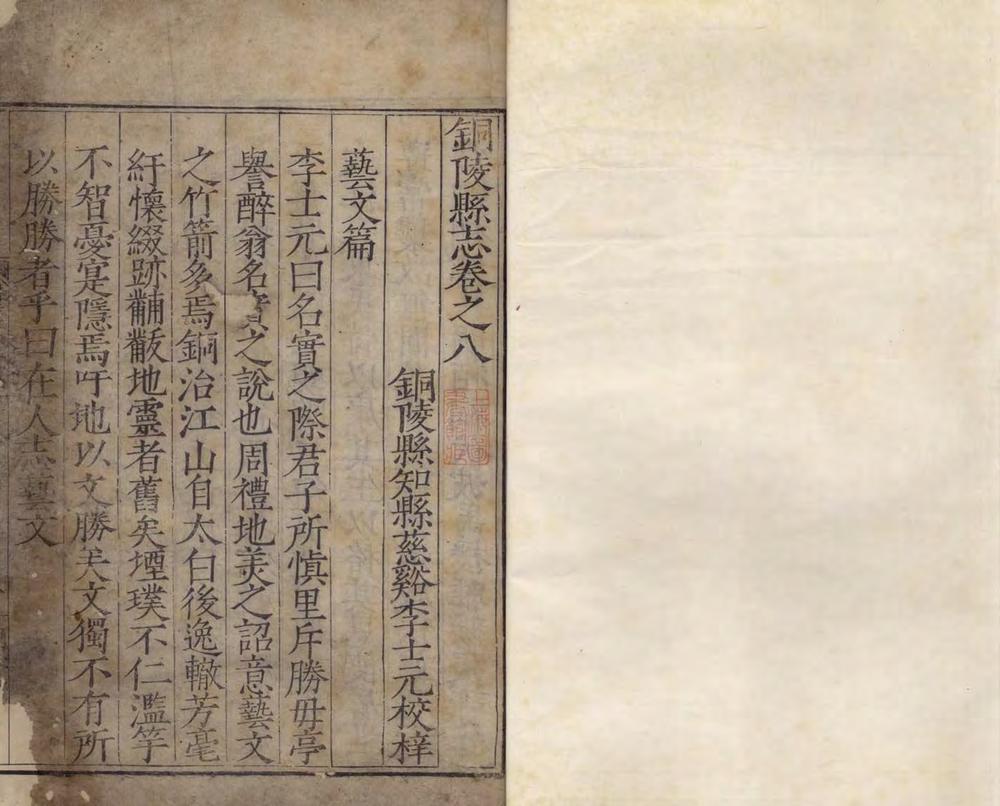 銅陵縣志卷之八
銅陵縣知縣慈谿李士元校梓
藝文篇
李士元曰名實之際君子所慎里斥勝毋亭
譽醉翁名實之說也周禮地美之詔意藝文
之竹箭多焉銅治江山自太白後逸轍芳毫
紆懷綴跡黼黻地靈者舊矣堙璞不仁濫竽
不智憂寔隱焉吁地以文勝美文獨不有所
以勝勝者乎曰在人志藝文